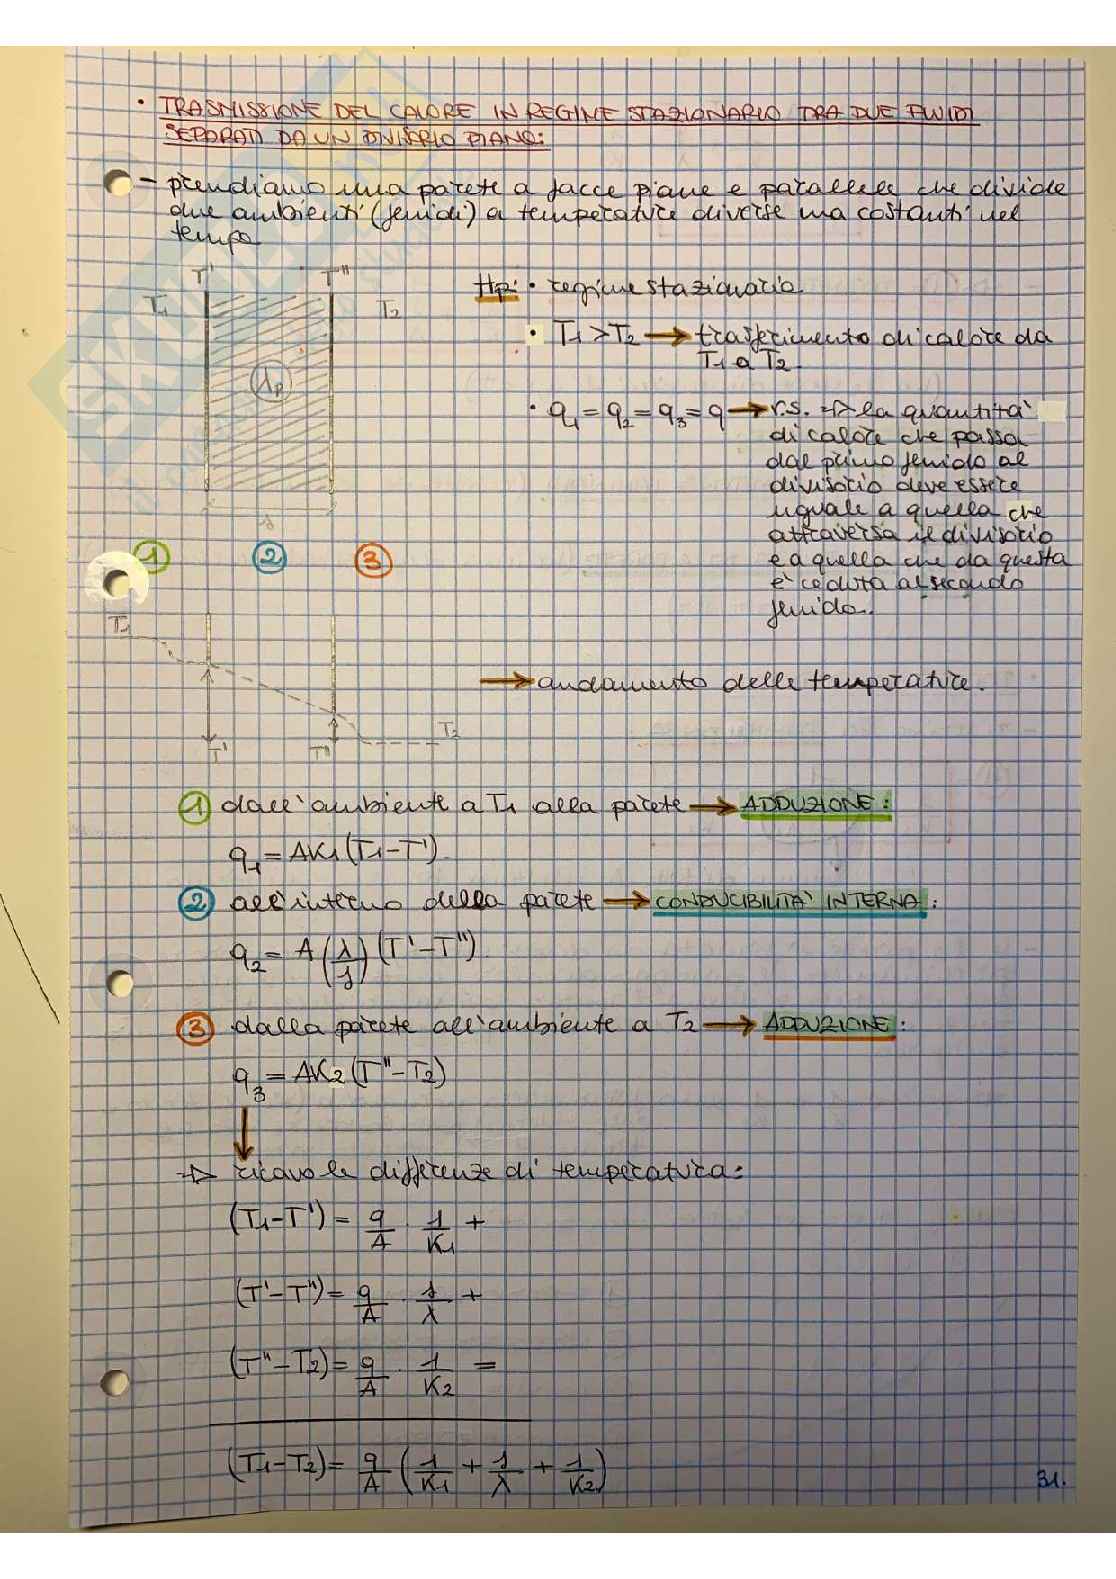 • TRASMISSIONE DEL CALORE IN REGIME STAZIONARIO TRA DUE FLUIDI
SEPARATI DA UN DIVISORIO PIANO:
- prendiamo una parete a facce piane e parallele che divide
due ambienti (fluidi) a temperature diverse ma costanti nel
tempo
T' T"
T1 T2
λp
s
Hp: • regime stazionario
• T1 > T2 → trasferimento di calore da
T1 a T2.
• q1 = q2 = q3 = q → r.s. => la quantità
di calore che passa
dal primo fluido al
divisorio deve essere
uguale a quella che
attraversa il divisorio
e a quella che da questa
è ceduta al secondo
fluido.
1 2 3
T1
T' T" T2
→ andamento delle temperature.
1 dall'ambiente a T1 alla parete → ADDUZIONE:
q1 = AK1 (T1 - T')
2 all'interno della parete → CONDUCIBILITA' INTERNA:
q2 = A (λ/s) (T' - T")
3 dalla parete all'ambiente a T2 → ADDUZIONE:
q3 = AK2 (T" - T2)
=> ricavo le differenze di temperatura:
(T1 - T') = q/A · 1/K1 +
(T' - T") = q/A · s/λ +
(T" - T2) = q/A · 1/K2 =
(T1 - T2) = q/A (1/K1 + s/λ + 1/K2)
31.